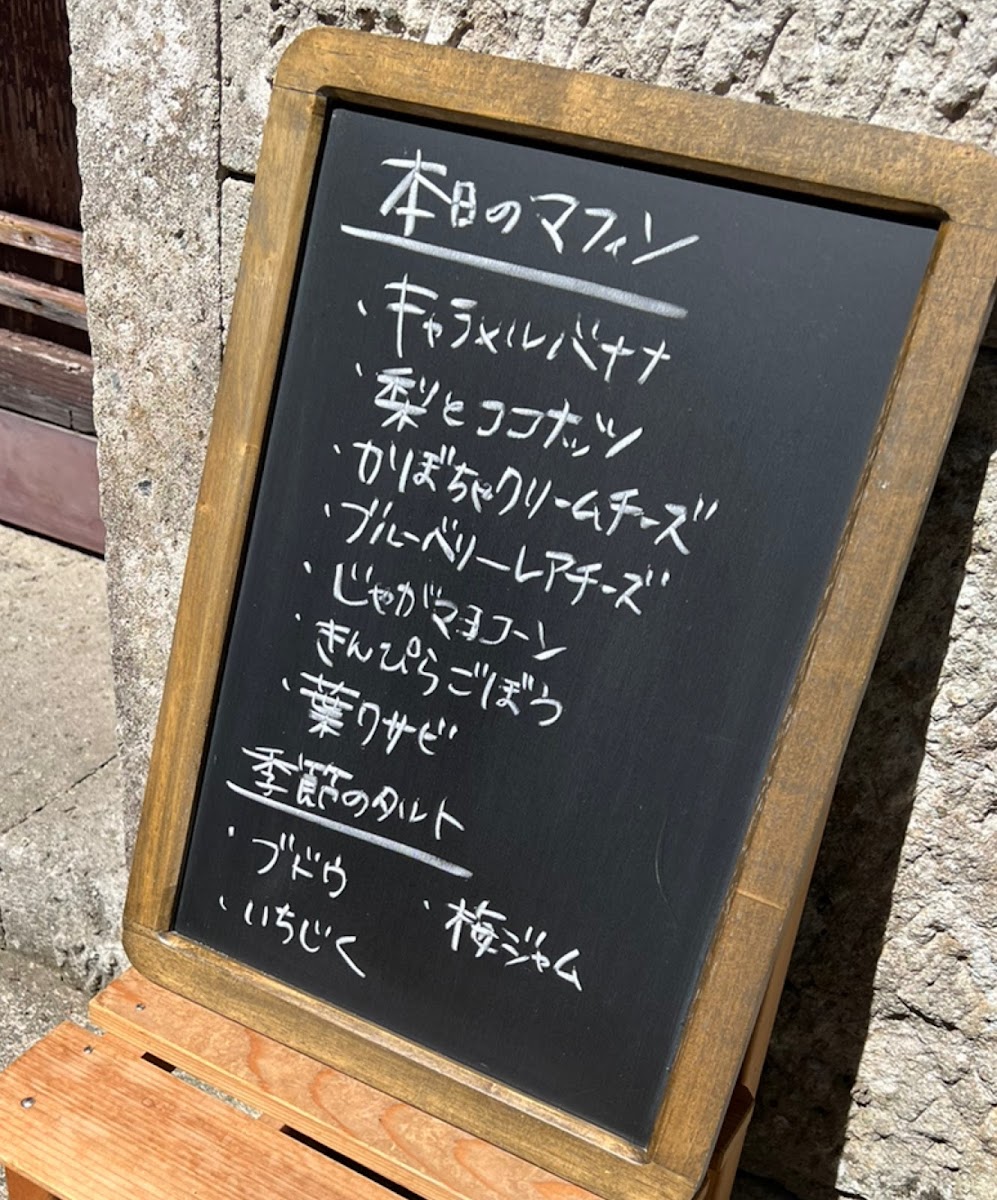 本日のマフィン
・キャラメルバナナ
・梨とココナッツ
・かりぼちゃクリームチーズ
・ブルーベリーレアチーズ
・じゃがマヨコーン
・きんぴらごぼう
・葉ワサビ
季節のタルト
・ブドウ
・いちじく ・梅ジャム